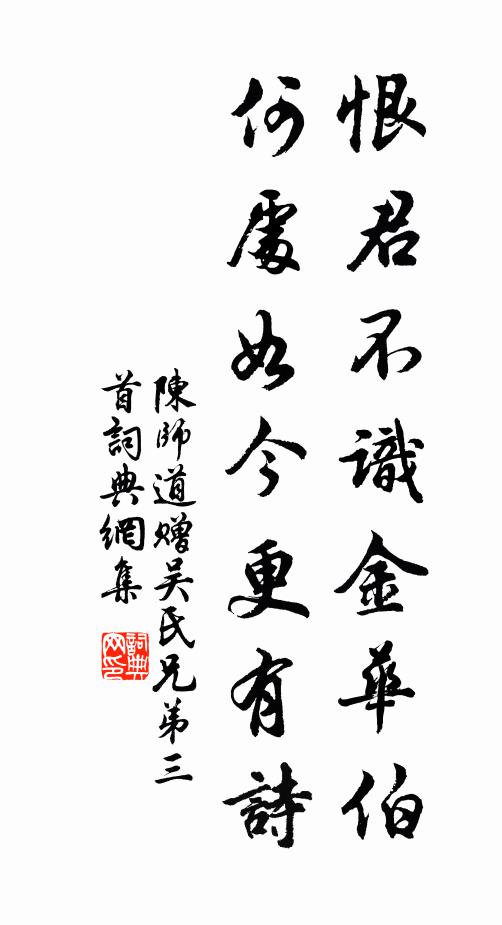 恨君不識金華伯
何處如今更有詩
陳師道贈吴氏兄弟三
首詞典網集
詞典
网印